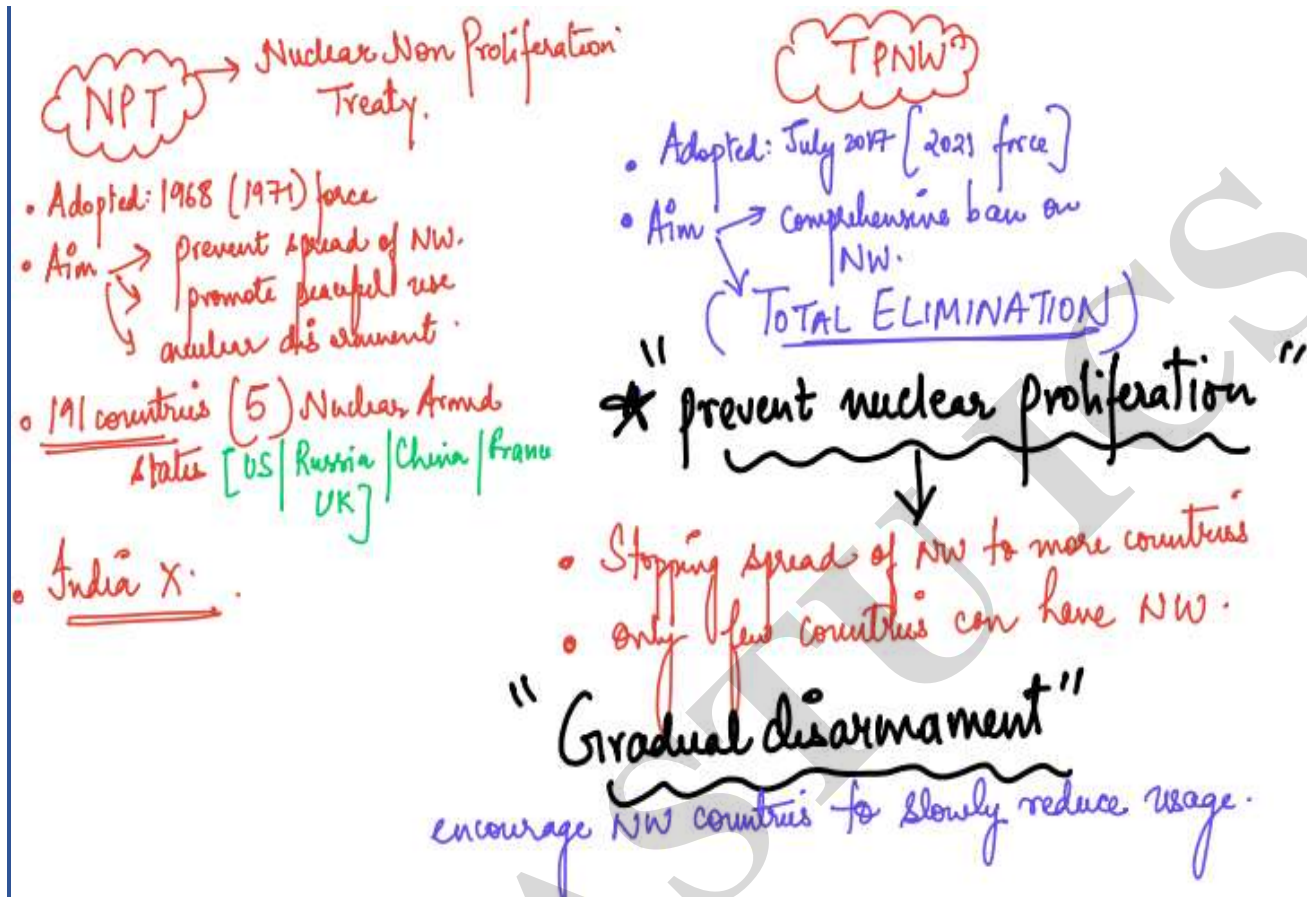 NPT → Nuclear Non Proliferation
Treaty.
• Adopted: 1968 (1971) force
• Aim → prevent spread of NW.
promote peaceful use
nuclear disarmament.
• 191 countries (5) Nuclear Armed
States [US | Russia | China | France
UK]
• India X.
TPNW
• Adopted: July 2017 [2021 force]
• Aim → comprehensive ban on
NW.
(TOTAL ELIMINATION)
* "prevent nuclear proliferation"
• Stopping spread of NW to more countries
• only few countries can have NW.
"Gradual disarmament"
encourage NW countries to slowly reduce usage.
ASTU ICS